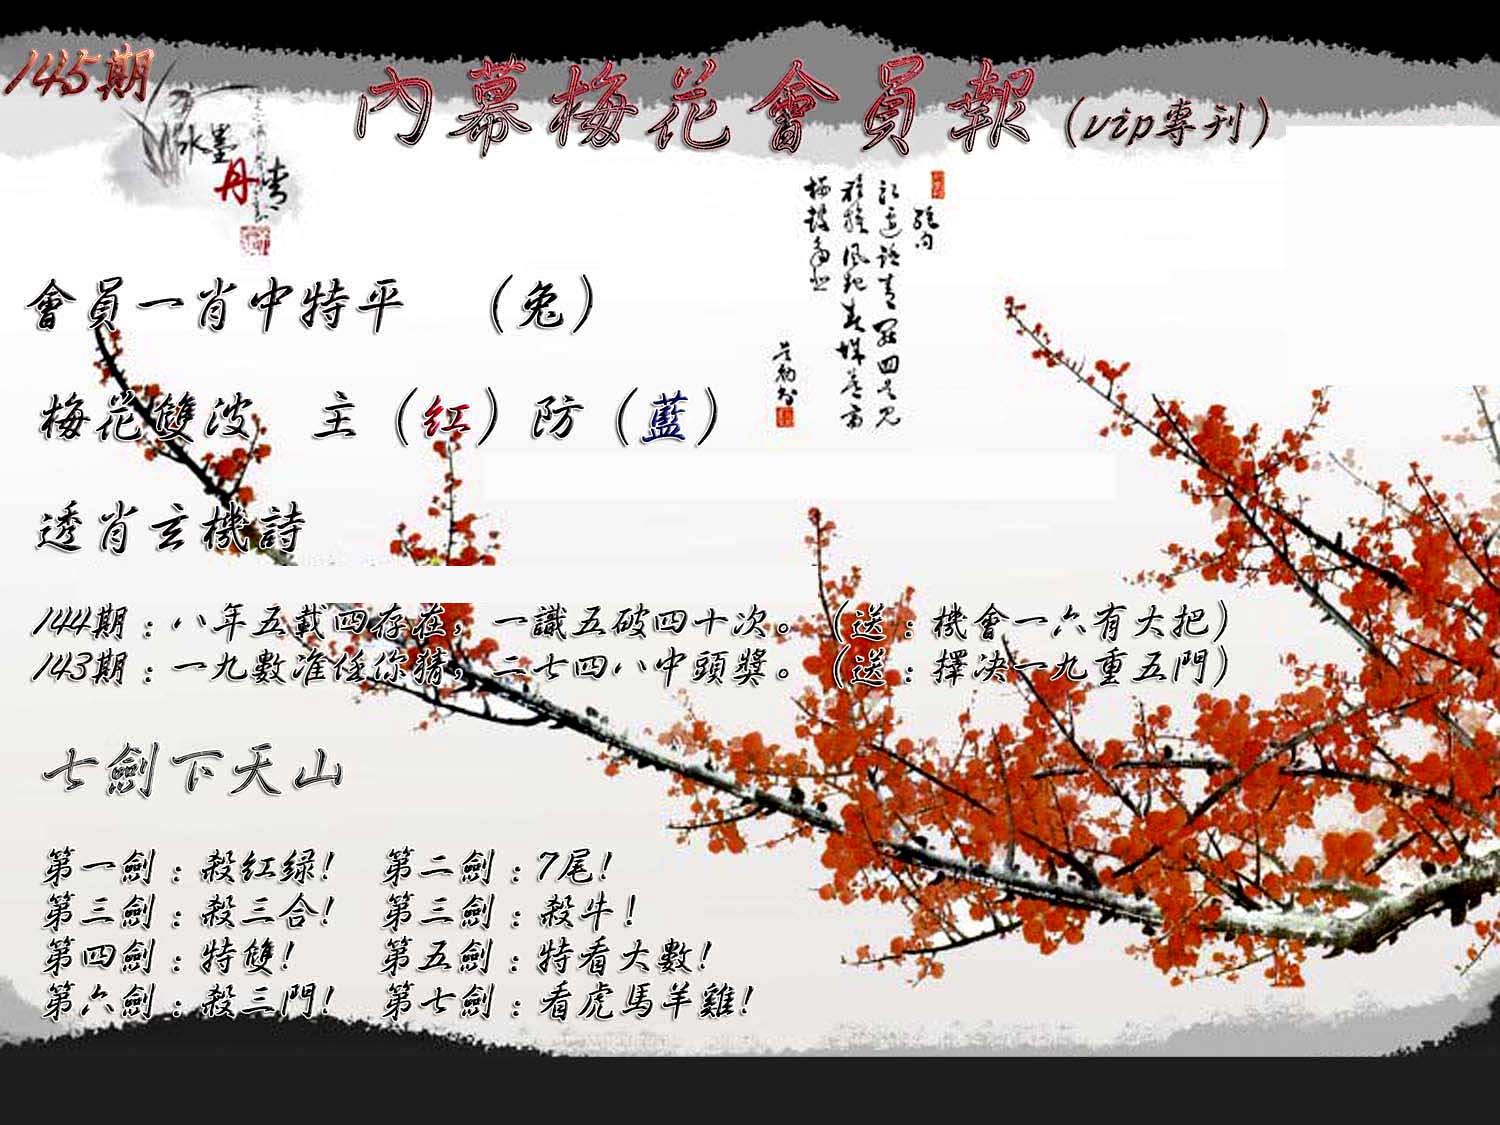 145期
內幕梅花會員報(vip專刊)
水墨
丹青
絕句
會員一肖中特平 (兔)
梅花雙波 主(紅)防(藍)
透肖玄機詩
144期:八年五載四存在,一識五破四十次。(送:機會一六有大把)
143期:一九數准任你猜,二七四八中頭獎。(送:擇决一九重五門)
七劍下天山
第一劍:殺紅绿! 第二劍:7尾!
第三劍:殺三合! 第三劍:殺牛!
第四劍:特雙! 第五劍:特看大數!
第六劍:殺三門! 第七劍:看虎馬羊雞!